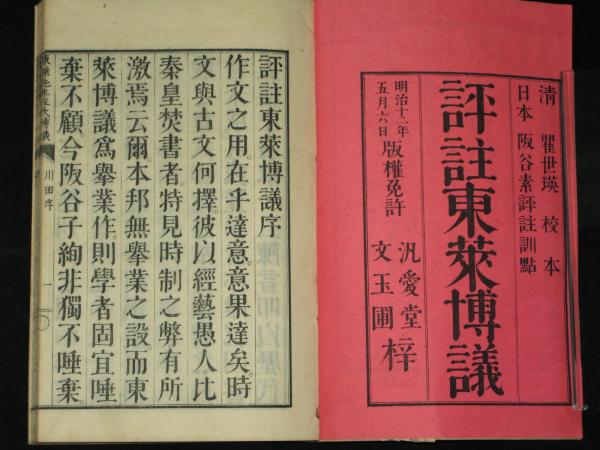 清 瞿世瑛 校本
日本 阪谷素評註訓點
評註東萊博議
明治十二年
五月六日
版權免許
汎愛堂
文玉圃
梓
評註東萊博議序
作文之用。在乎達意。意果達矣。時
文與古文何擇。彼以經藝愚人。比
秦皇焚書者。特見時制之弊有所
激焉云爾。本邦無舉業之設。而東
萊博議爲舉業作。則學者固宜唾
棄不顧。今阪谷子絢非獨不唾棄。
川田序
一